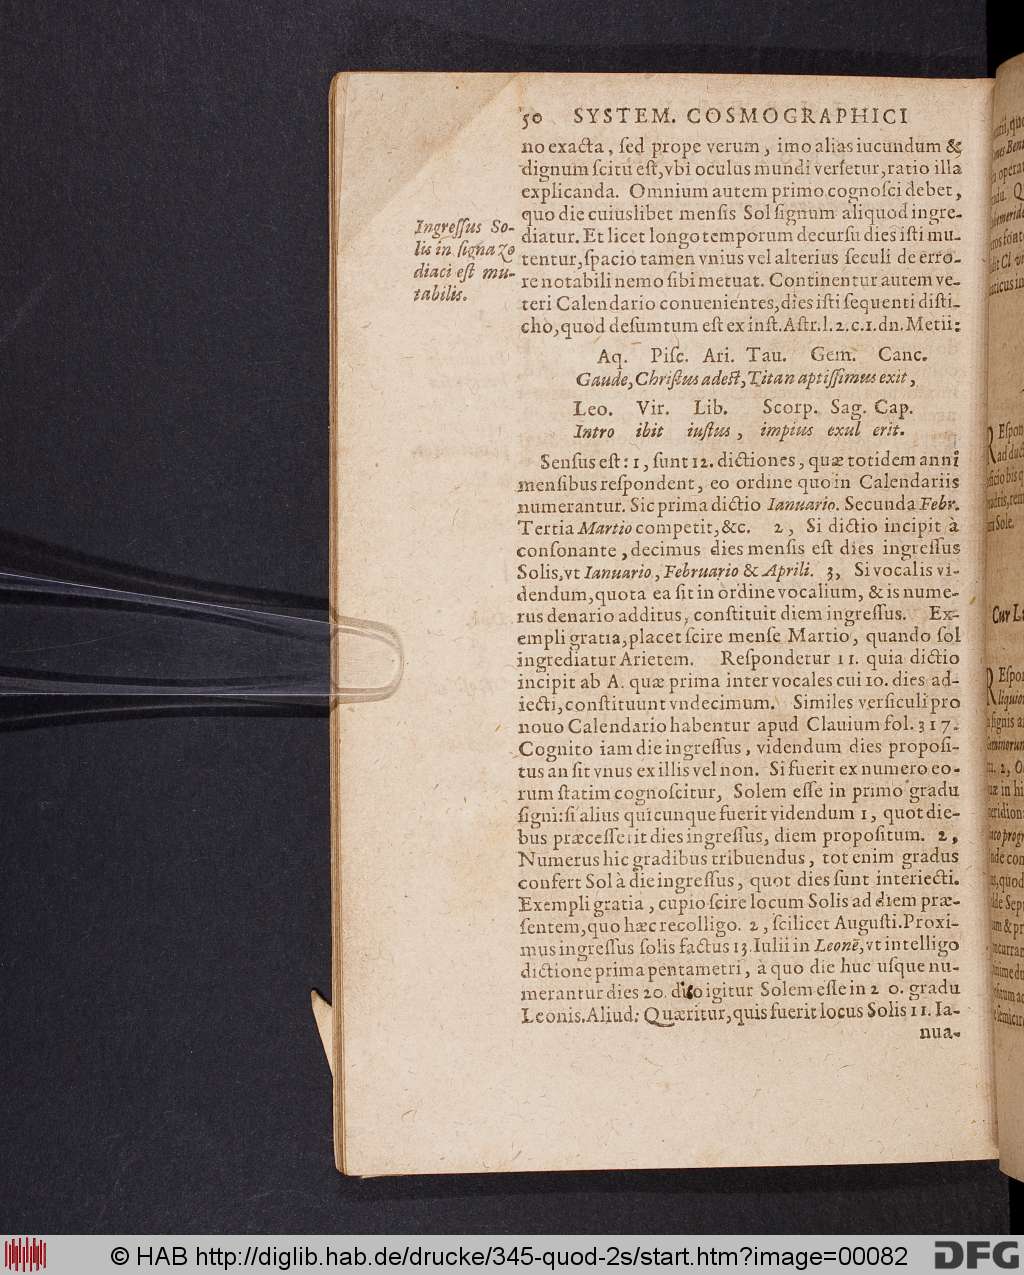 50 SYSTEM. COSMOGRAPHICI
no exacta, sed prope verum, imo alias iucundum &
dignum scitu est, vbi oculus mundi versetur, ratio illa
explicanda. Omnium autem primo cognosci debet,
quo die cuiuslibet mensis Sol signum aliquod ingre-
diatur. Et licet longo temporum decursu dies isti mu-
tentur, spacio tamen vnius vel alterius seculi de erro-
re notabili nemo sibi metuat. Continentur autem ve-
teri Calendario conuenientes, dies isti sequenti disti-
cho, quod desumtum est ex inst. Astr. l. 2. c. 1. dn. Metii:
Ingressus So-
lis in signa zo
diaci est mu-
tabilis.
Aq. Pisc. Ari. Tau. Gem. Canc.
Gaude, Christus adest, Titan aptissimus exit,
Leo. Vir. Lib. Scorp. Sag. Cap.
Intro ibit iustus, impius exul erit.
Sensus est: 1, sunt 12. dictiones, quæ totidem anni
mensibus respondent, eo ordine quo in Calendariis
numerantur. Sic prima dictio Ianuario. Secunda Febr.
Tertia Martio competit, &c. 2, Si dictio incipit à
consonante, decimus dies mensis est dies ingressus
Solis, vt Ianuario, Februario & Aprili. 3, Si vocalis vi-
dendum, quota ea sit in ordine vocalium, & is nume-
rus denario additus, constituit diem ingressus. Ex-
empli gratia, placet scire mense Martio, quando sol
ingrediatur Arietem. Respondetur 11. quia dictio
incipit ab A. quæ prima inter vocales cui 10. dies ad-
iecti, constituunt vndecimum. Similes versiculi pro
nouo Calendario habentur apud Clauium fol. 317.
Cognito iam die ingressus, videndum dies proposi-
tus an sit vnus ex illis vel non. Si fuerit ex numero eo-
rum statim cognoscitur, Solem esse in primo gradu
signi: si alius quicunque fuerit videndum 1, quot die-
bus præcesserit dies ingressus, diem propositum. 2,
Numerus hic gradibus tribuendus, tot enim gradus
confert Sol à die ingressus, quot dies sunt interiecti.
Exempli gratia, cupio scire locum Solis ad diem præ-
sentem, quo hæc recolligo. 2, scilicet Augusti. Proxi-
mus ingressus solis factus 13. Iulii in Leonē, vt intelligo
dictione prima pentametri, à quo die huc usque nu-
merantur dies 20. dico igitur Solem esse in 20. gradu
Leonis. Aliud: Quæritur, quis fuerit locus Solis 11. Ia-
nua-
© HAB http://diglib.hab.de/drucke/345-quod-2s/start.htm?image=00082
DFG